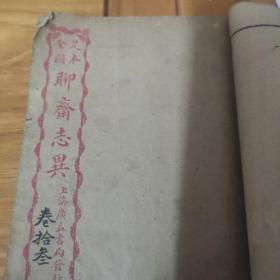 足本
全圖
聊齋志異
上海廣益書局發行
卷拾叁